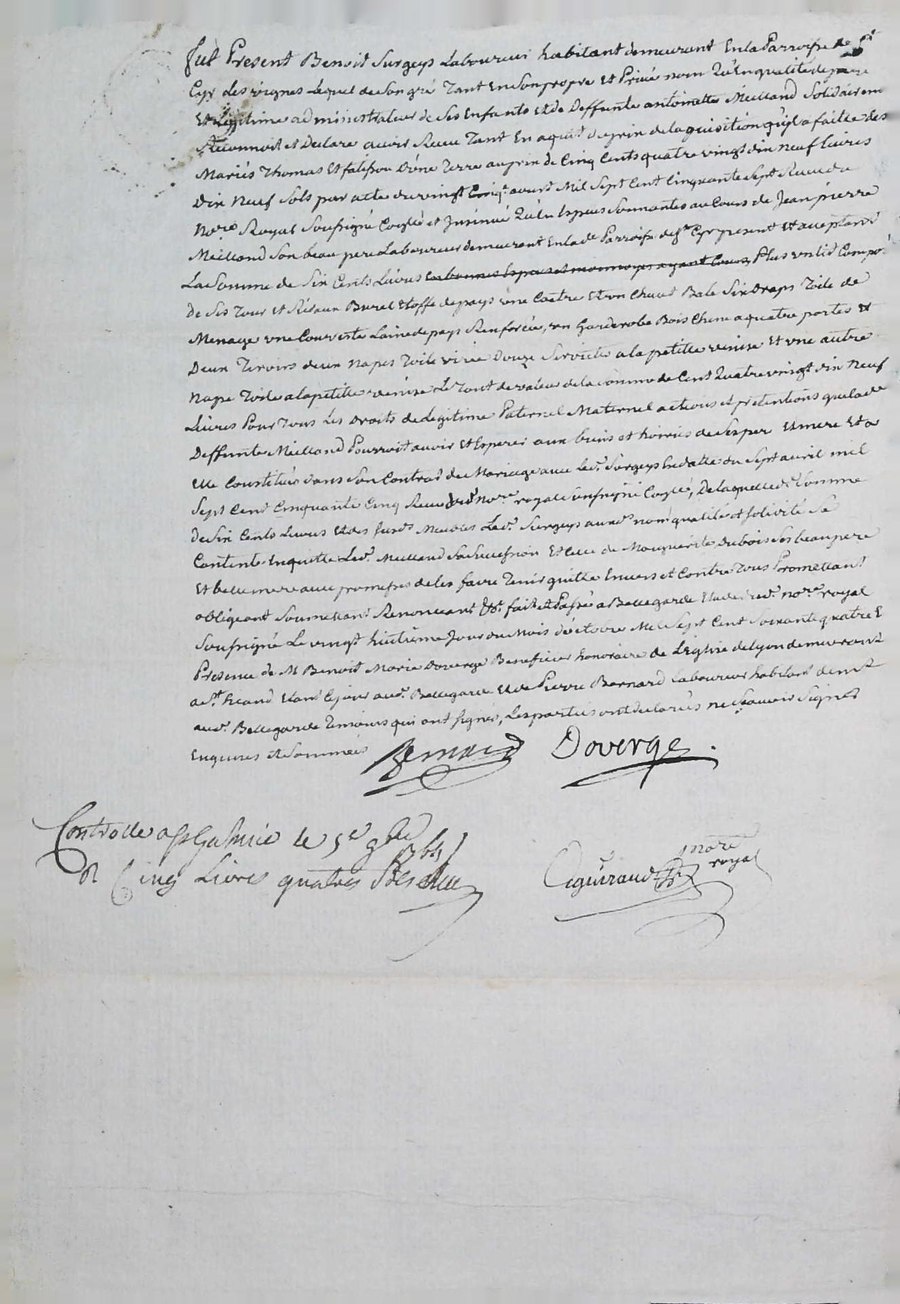 fut Present Benoit Surgeys Laboureur habitant demeurant En la Parroisse de St
Cyr des vignes Lequel de Son gré Tant En Son propre et Privé nom qu'En qualité de pere
Et Legitime administrateur de Ses Enfants et de Deffunte antoinette Meilland Solidairem
Reconnoit et Declare avoir Receu Tant En aquit de prix de laquisition qu'il a faitte des
Mariés Thomas Et D'ene Terre au prix de Cinq Cents quatre vingt dix Neuf Livres
Dix Neuf Sols par acte du vingt Cinq aoust Mil Sept Cent Cinquante Sept Receu du
Nore Royal Soussigné Coglée et Jnsinué qu'En Especes Sonnantes au Cours de Jean pierre
Meilland Son beau pere Laboureur demeurant En lad Parroisse de St Cyr present Et acceptant
La Somme de Six Cents Livres Plus un lid Compo-
de Ses Tour et Rideau Burel Etoffe de pays ène Coetre Et un Chevet Bale Six Draps Toile de
Menage une Couverte Laine de pays Renforcée, un Garderobe Bois Chene a quatre portes Et
Deux Tiroirs deux Napes Toile Douze Serviete a la petitte venise Et vne autre
Nape Toile a la petitte venise Le Tout de valeur de la somme de Cent Quatre vingt dix Neuf
Livres Pour Tous Les Droits de Legitime Paternel Maternel actions et pretentions que lade
Deffunte Meilland Pourroit avoir Et Esperer aux biens et hoiries de Ses per Et mere Et a
Elle Constitués dans Son Contrat de Mariage avec led. Surgeys En datte du Sept avril mil
Sept Cent Cinquante Cinq Receu dud. nore royal Soussigné Coglé, De laquelle de Somme
de Six Cents Livres Et des Susd. Meubles Led. Surgeys aux d. nom qualité et solidité Se
Contente En quitte Led. Meilland Sa Succession Et Celle de Marguerite Dubois Ses beau pere
Et belle mere avec promesses de les faire Tenir quitte Envers et Contre Tous Promettant
obligeant Soumettant Renonceant &c. fait et Passé a Bellegarde Etude dud. nore royal
Soussigné Le vingt huitieme Jour du Mois d'octobre Mil Sept Cent Soixante quatre E
Presence de M Benoit Marie Doverge Beneficier honoraire de L'Eglise de Lyon demeurant
aud. Bellegarde Et de Pierre Bernard Laboureur habitant demt
aud. Bellegarde Temoins qui ont signés, Les parties ont declarés ne Sçavoir Signer
Enquises et Sommées
Bernard Doverge.
Controllé a St Galmier le 5e 9bre
1764
R Cinq Livres quatres Sols
nore
royal